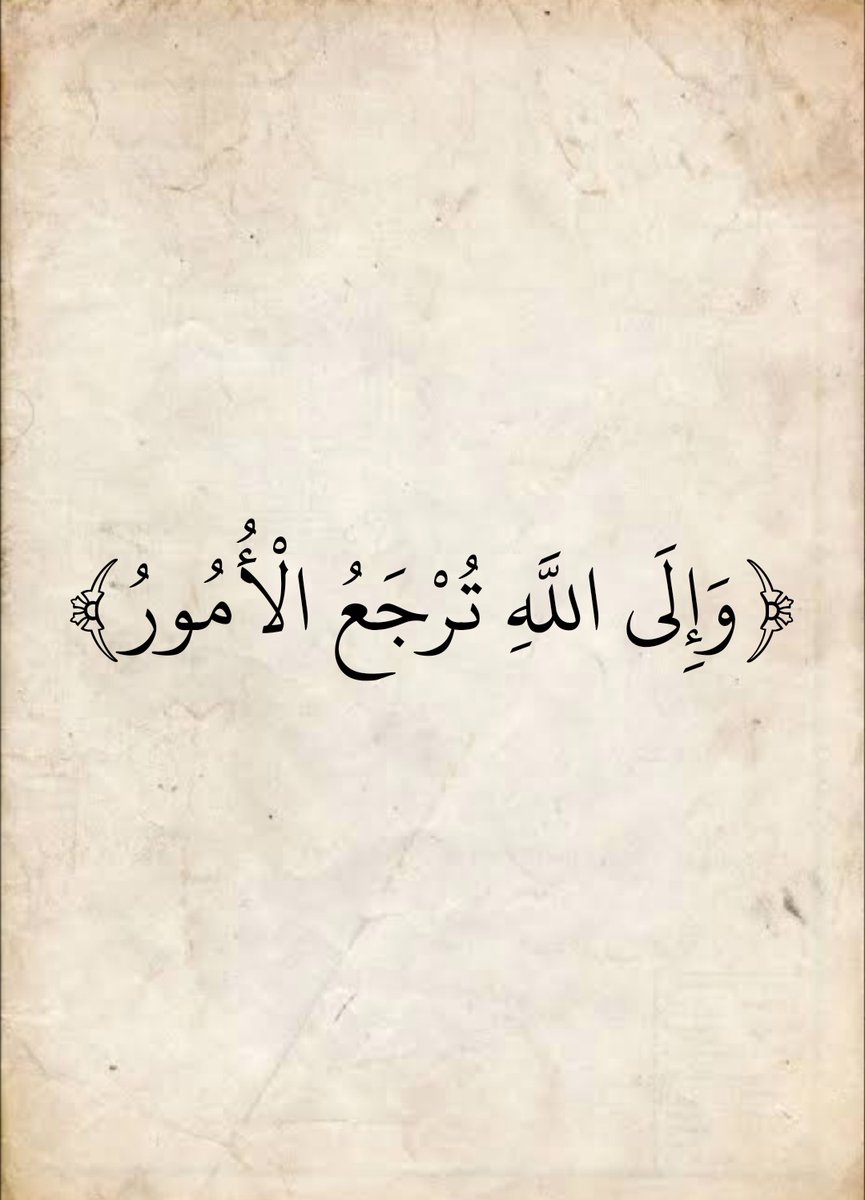 ﴿وَإِلَى اللَّهِ تُرْجَعُ الْأُمُورُ﴾